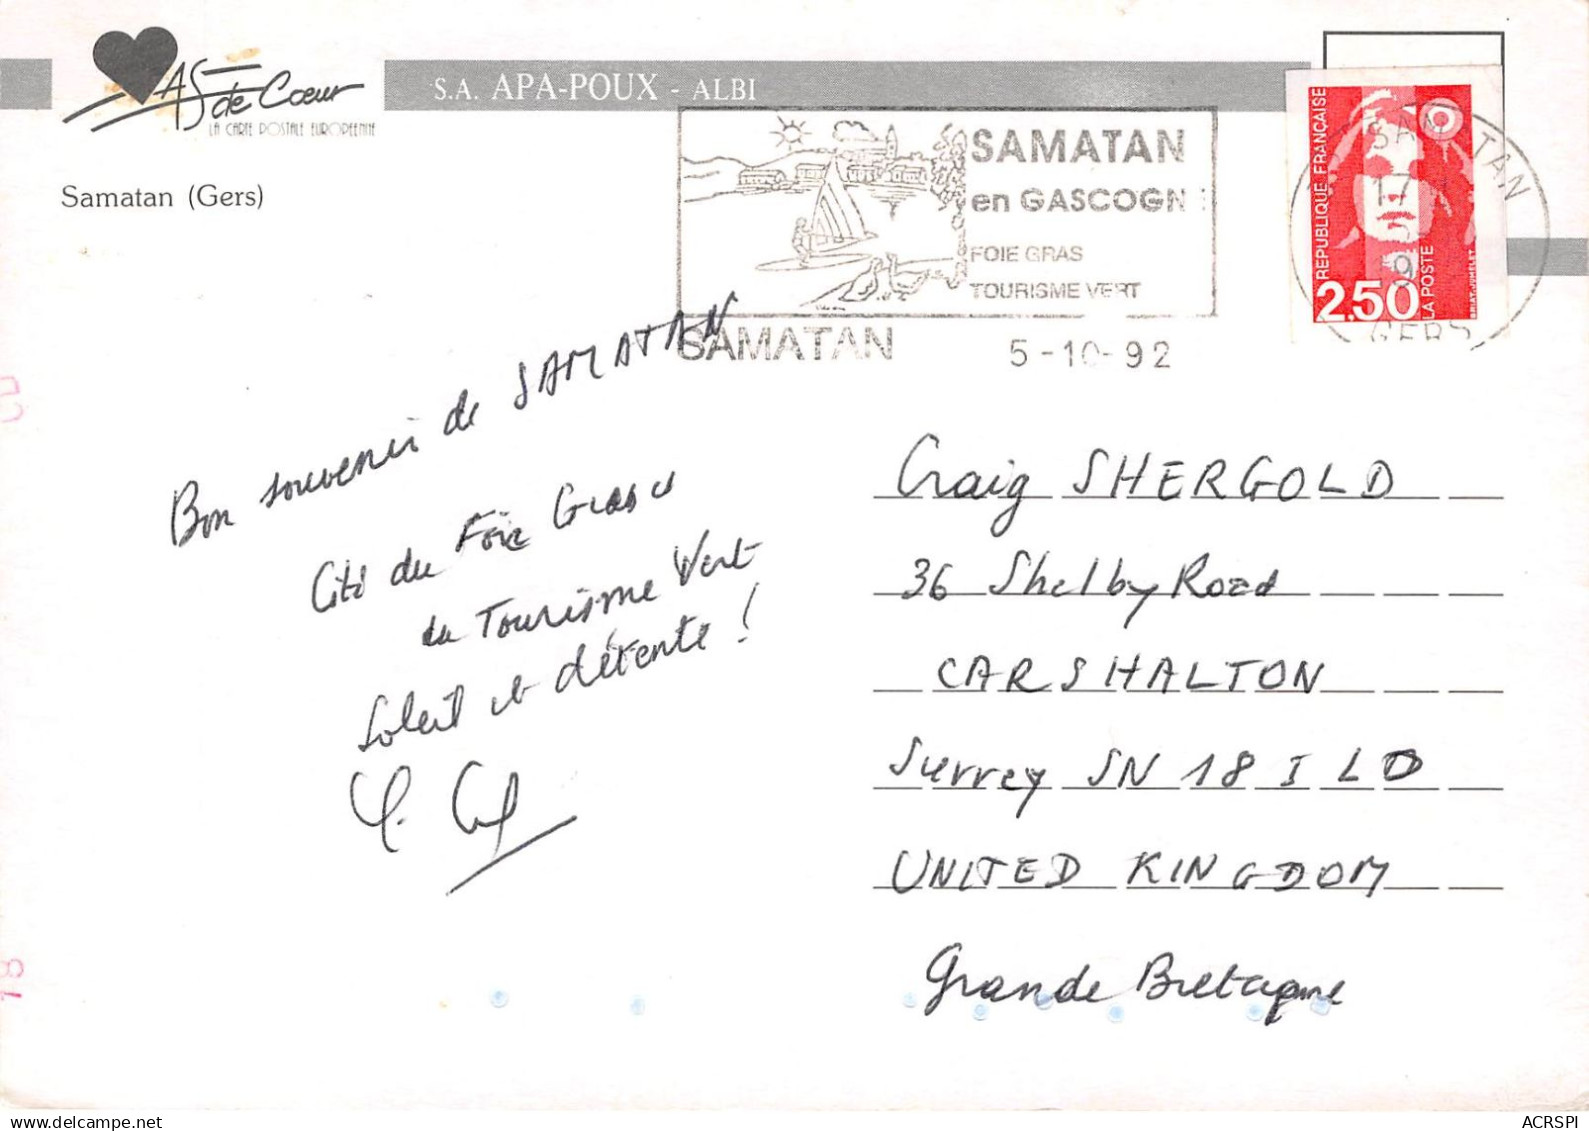 As de Cœur
LA CARTE POSTALE EUROPEENNE
S.A. APA-POUX - ALBI
Samatan (Gers)
SAMATAN
en GASCOGN
FOIE GRAS
TOURISME VERT
SAMATAN
5-10-92
REPUBLIQUE FRANÇAISE
2,50
LA POSTE
BRIAT-JUMELET
SAMATAN
17
9
GERS
Bon souvenir de SAMATAN
Cité du Foie Gras et
du Tourisme Vert
Soleil et détente !
Craig SHERGOLD
36 Shelby Road
CARSHALTON
Surrey SN 18 I LD
UNITED KINGDOM
Grande Bretagne
18
ACRSPI